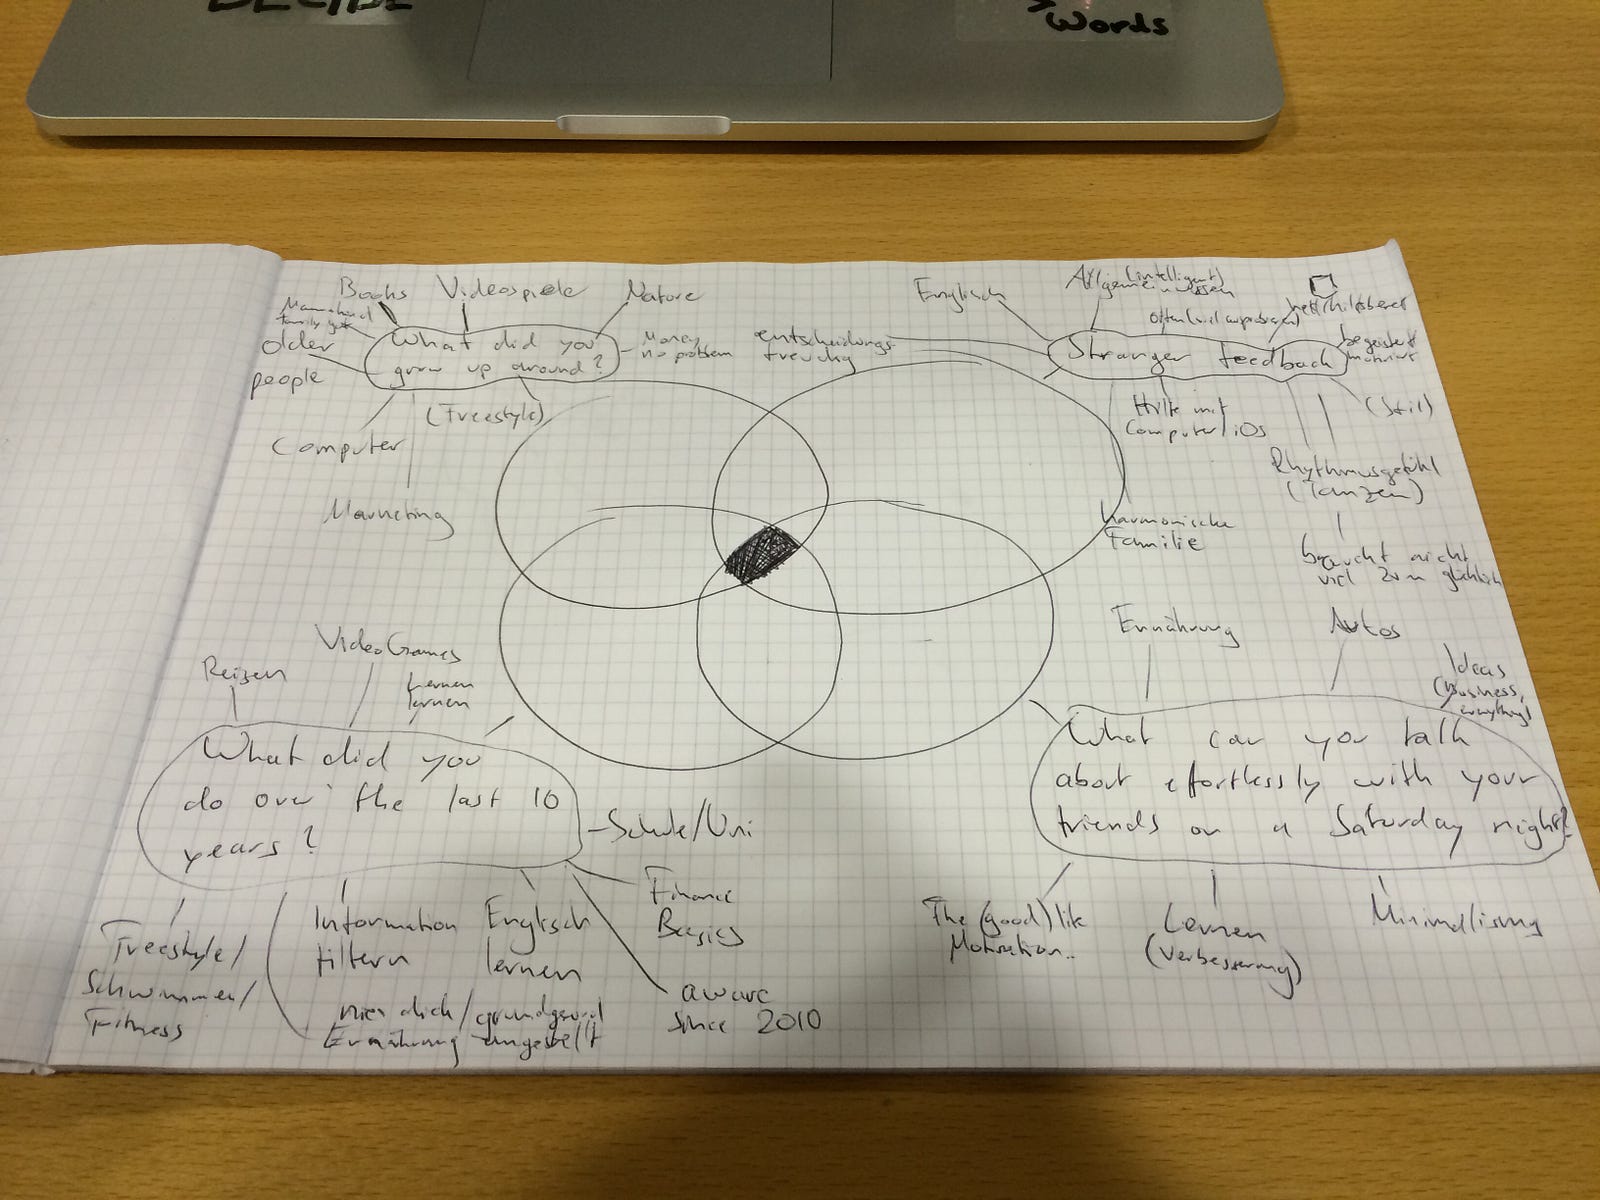 Words
Books
Videospiele
Nature
older
people
What did you
grow up around?
Money
no problem
(Freestyle)
Computer
Marketing
entscheidungs
freudig
Englisch
(intelligent)
Allgemeinwissen
Stranger feedback
begeistert
(Stil)
Hilfe mit
Computer/iOS
Rhythmusgefühl
(Tanzen)
harmonische
Familie
braucht nicht
viel zum glücklich
Reisen
VideoGames
Lernen
lernen
What did you
do over the last 10
years?
Schule/Uni
Finance
Basics
aware
since 2010
Freestyle/
Schwimmen/
Fitness
Information
filtern
Englisch
lernen
Ernährung
Ernährung
Autos
Ideas
(Business,
everything)
What can you talk
about effortlessly with your
friends on a Saturday night?
The (good) life
Motivation..
Lernen
(Verbesserung)
Minimalismus